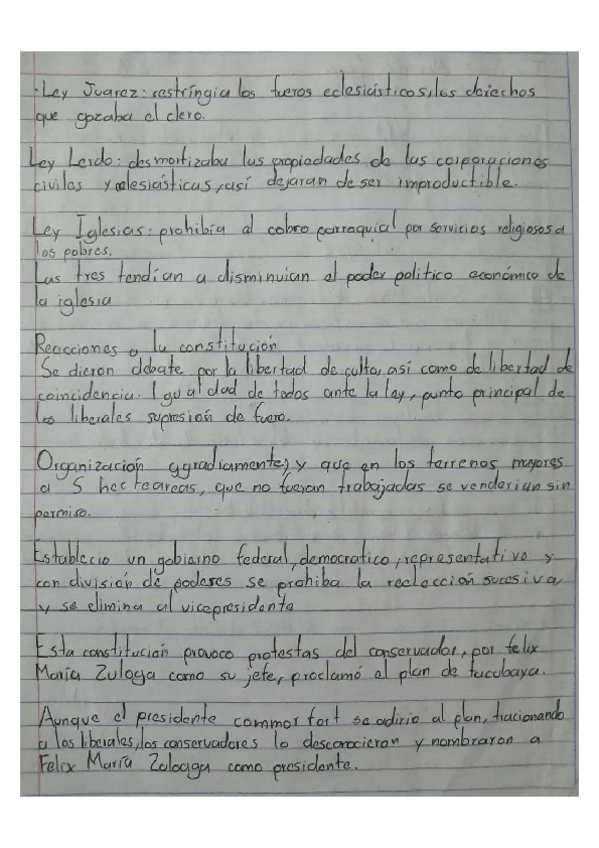 · Ley Juarez: restringia los fueros eclesiásticos, los derechos
que gozaba el clero.
Ley Lerdo: desmortizaba las propiadades de las corporaciones
civiles y eclesiásticas, así dejaran de ser improductible.
Ley Iglesias: prohibía al cobro parraquial por servicios religiosos a
los pobres.
Las tres tendían a disminuian el poder politico económico de
la iglesia
Reacciones a la constitución
Se dieron debate por la libertad de culto, así como de libertad de
coincidencia. Igualdad de todos ante la ley, punto principal de
los liberales supresión de fuero.
Organización y que en los terrenos mayores
a 5 hecteareas, que no fueran trabajadas se venderian sin
permiso.
Establecio un gobierno federal, democratico, representativo y
con división de poderes se prohiba la reelección sucesiva,
y se elimina al vicepresidente
Esta constitución provoco protestas del conservador, por felix
María Zuloga como su jefe, proclamó el plan de tacubaya.
Aunque el presidente commorfort se adirio al plan, tracionando
a los liberales, los conservadores lo desconocieron y nombraron a
Felix María Zuloaga como presidente.